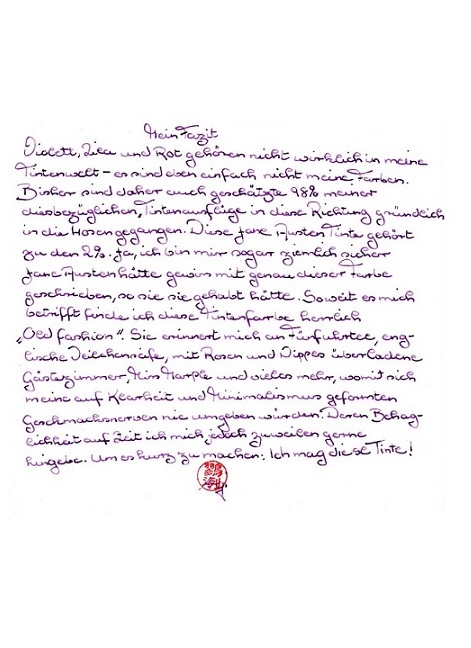 Mein Fazit
Violett, Lila und Rot gehören nicht wirklich in meine
Tintenwelt – es sind eben einfach nicht meine Farben.
Bisher sind daher auch geschätzte 98% meiner
diesbezüglichen, Tintenausflüge in diese Richtung gründlich
in die Hosen gegangen. Diese Jane Austen Tinte gehört
zu den 2%. Ja, ich bin mir sogar ziemlich sicher
Jane Austen hätte gewiss mit genau dieser Farbe
geschrieben, so sie sie gehabt hätte. Soweit es mich
betrifft finde ich diese Tintenfarbe herrlich
„Old fashion“. Sie erinnert mich an Fünfuhrtee, eng-
lische Veilchenseife, mit Rosen und Nippes überladene
Gästezimmer, Miss Marple und vieles mehr, womit sich
meine auf Klarheit und Minimalismus geformten
Geschmacksnerven nie umgeben würden. Deren Behag-
lichkeit auf Zeit ich mich jedoch zuweilen gerne
hingebe. Um es kurz zu machen: Ich mag diese Tinte!